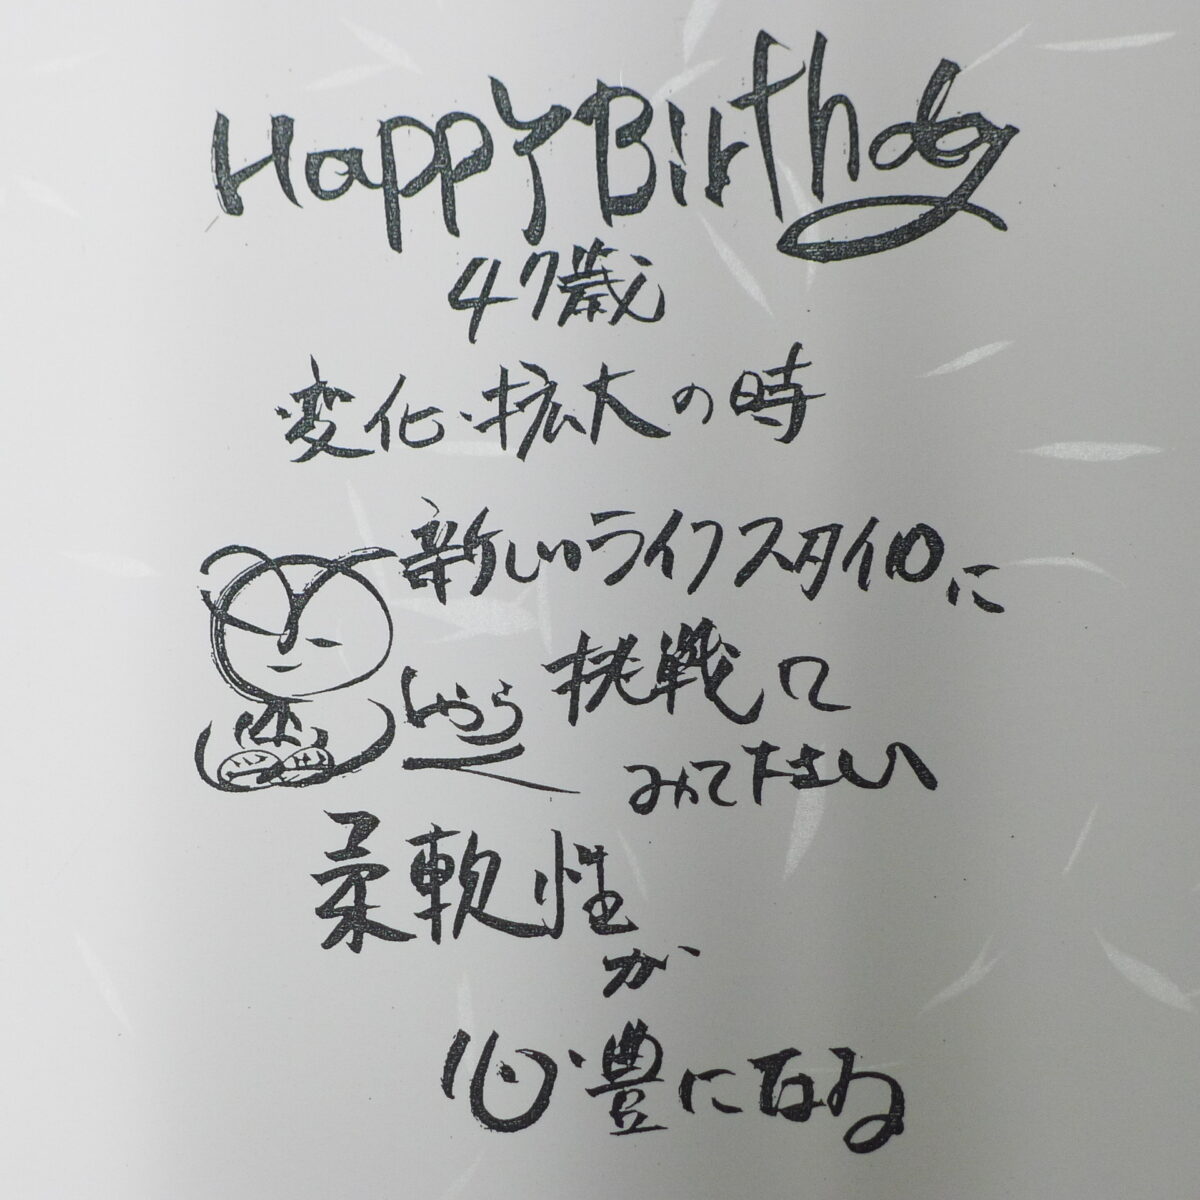 Happy Birthday
47歳
変化・拡大の時
新しいライフスタイルに
挑戦して
みて下さい
柔軟性
が
心豊になる